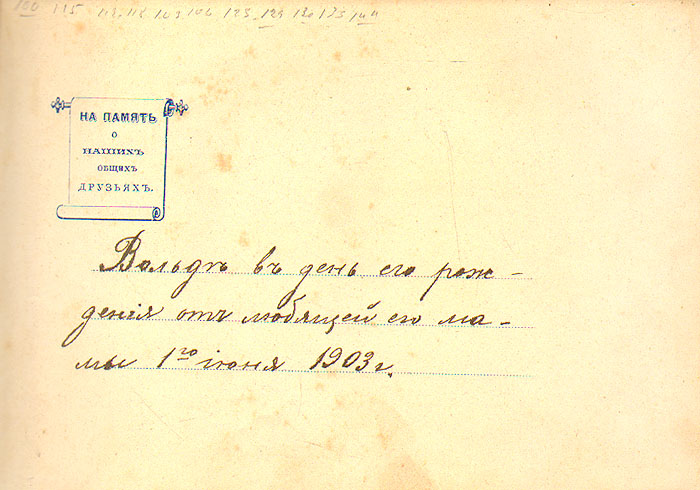 100 115 112. 118 103 106 123 129 130 135 144
НА ПАМЯТЬ
О
НАШИХЪ
ОБЩИХЪ
ДРУЗЬЯХЪ.
Вольдѣ въ день его рож-
денія отъ любящей его ма-
мы 1го іюня 1903 г.